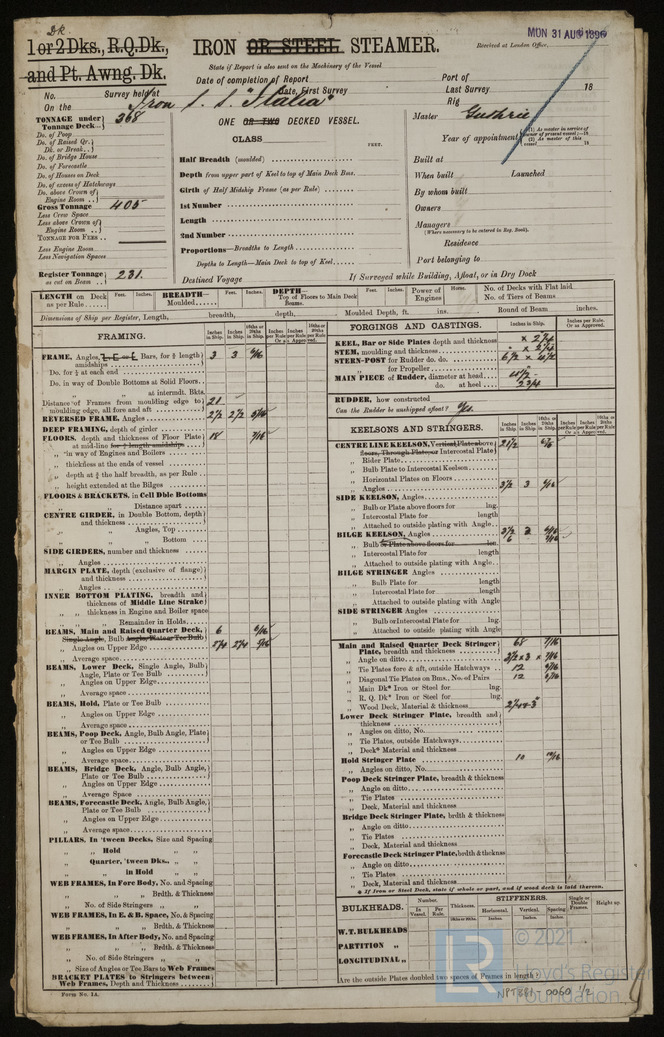 DK
1 or 2 Dks., R.Q.Dk.,
and Pt. Awng. Dk.
IRON OR STEEL STEAMER.
MON 31 AUG 1896
Received at London Office,
State if Report is also sent on the Machinery of the Vessel
Date of completion of Report
Port of
No. Survey held at
Date, First Survey
Last Survey 18
On the Iron S. S. "Italia"
Rig
TONNAGE under Tonnage Deck 368
Do. of Poop
Do. of Raised Qr. Dk. or Break
Do. of Bridge House
Do. of Forecastle
Do. of Houses on Deck
Do. of excess of Hatchways
Do. above Crown of Engine Room
Gross Tonnage 405
Less Crew Space
Less above Crown of Engine Room
TONNAGE FOR FEES
Less Engine Room
Less Navigation Spaces
Register Tonnage as cut on Beam 231.
ONE OR TWO DECKED VESSEL.
CLASS
FEET.
Half Breadth (moulded)
Depth from upper part of Keel to top of Main Deck Bms.
Girth of Half Midship Frame (as per Rule)
1st Number
Length
2nd Number
Proportions—Breadths to Length
Depths to Length—Main Deck to top of Keel
Destined Voyage
If Surveyed while Building, Afloat, or in Dry Dock
Master Guthrie
Year of appointment
(1) As master in service of owner of present vessel:—18
(2) As master of this vessel 18
Built at
When built Launched
By whom built
Owners
Managers
(Where necessary to be entered in Reg. Book).
Residence
Port belonging to
LENGTH on Deck as per Rule
Feet. Inches.
BREADTH— Moulded
Feet. Inches.
DEPTH— Top of Floors to Main Deck Beams.
Feet. Inches.
Power of Engines
Horse.
No. of Decks with Flat laid
No. of Tiers of Beams
Dimensions of Ship per Register, Length, breadth, depth, Moulded Depth, ft. ins. Round of Beam inches.
FRAMING.
Inches in Ship. Inches in Ship. 16ths or 20ths in Ship. Inches per Rule Inches per Rule 16ths or 20ths per Rule
Or as Approved.
FRAME, Angles, Z, E or L Bars, for ⅗ length amidships 3 3 6/16
Do. for ⅕ at each end
Do. in way of Double Bottoms at Solid Floors
" " at intermdt. Bkts.
Distance of Frames from moulding edge to moulding edge, all fore and aft 21
REVERSED FRAME, Angles 2½ 2½ 5/16
DEEP FRAMING, depth of girder
FLOORS, depth and thickness of Floor Plate at mid-line for ½ length amidships 18 7/16
" in way of Engines and Boilers
" thickness at the ends of vessel
" depth at ¾ the half breadth, as per Rule
" height extended at the Bilges
FLOORS & BRACKETS, in Cell Dble Bottoms
" " Distance apart
CENTRE GIRDER, in Double Bottom, depth and thickness
" " Angles, Top
" " Bottom
SIDE GIRDERS, number and thickness
" Angles
MARGIN PLATE, depth (exclusive of flange) and thickness
" Angles
INNER BOTTOM PLATING, breadth and thickness of Middle Line Strake
" " thickness in Engine and Boiler space
" " Remainder in Holds
BEAMS, Main and Raised Quarter Deck, Single Angle, Bulb Angle, Plate or Tee Bulb 6 6/16
" Angles on Upper Edge 2¼ 2¼ 5/16
" Average space
BEAMS, Lower Deck, Single Angle, Bulb Angle, Plate or Tee Bulb
" Angles on Upper Edge
" Average space
BEAMS, Hold, Plate or Tee Bulb
" Angles on Upper Edge
" Average space
BEAMS, Poop Deck, Angle, Bulb Angle, Plate or Tee Bulb
" Angles on Upper Edge
" Average space
BEAMS, Bridge Deck, Angle, Bulb Angle, Plate or Tee Bulb
" Angles on Upper Edge
" Average Space
BEAMS, Forecastle Deck, Angle, Bulb Angle, Plate or Tee Bulb
" Angles on Upper Edge
" Average space
PILLARS, In 'tween Decks, Size and Spacing
" Hold " "
" Quarter, 'tween Dks., " "
" " in Hold " "
WEB FRAMES, In Fore Body, No. and Spacing
" " Brdth. & Thickness
" No. of Side Stringers " "
WEB FRAMES, In E. & B. Space, No. & Spacing
" " Brdth. & Thickness
WEB FRAMES, In After Body, No. and Spacing
" " Brdth. & Thickness
" No. of Side Stringers " "
" Size of Angles or Tee Bars to Web Frames
BRACKET PLATES to Stringers between Web Frames, Depth and Thickness
Form No. 1A.
FORGINGS AND CASTINGS.
Inches in Ship. Inches per Rule. Or as Approved.
KEEL, Bar or Side Plates depth and thickness × 2¼
STEM, moulding and thickness × 2¼
STERN-POST for Rudder do. do. 6½ × 4½
" for Propeller
MAIN PIECE of Rudder, diameter at head 4½
do. at heel 2¾
RUDDER, how constructed
Can the Rudder be unshipped afloat?
KEELSONS AND STRINGERS.
Inches in Ship. Inches in Ship. 16ths or 20ths in Ship. Inches per Rule Inches per Rule 16ths or 20ths per Rule
Or as Approved.
CENTRE LINE KEELSON, Vertical Plate above floors, Through Plate or Intercostal Plate 21½ 6/16
" Rider Plate
" Bulb Plate to Intercostal Keelson
" Horizontal Plates on Floors
" Angles 3½ 3 6/16
SIDE KEELSON, Angles
" Bulb or Plate above floors for lng.
" Intercostal Plate for length
" Attached to outside plating with Angle
BILGE KEELSON, Angles 3½ 3 6/16
" Bulb or Plate above floors for lng. 6 7/16
" Intercostal Plate for length
" Attached to outside plating with Angle
BILGE STRINGER Angles
" Bulb Plate for length
" Intercostal Plate for length
" Attached to outside plating with Angle
SIDE STRINGER Angles
" Bulb or Intercostal Plate for lng.
" Attached to outside plating with Angle
Main and Raised Quarter Deck Stringer Plate, breadth and thickness 68 7/16
" Angle on ditto 3½ × 3 × 7/16
" Tie Plates fore & aft, outside Hatchways 12 6/16
" Diagonal Tie Plates on Bms., No. of Pairs 12 6/16
" Main Dk* Iron or Steel for lng.
" R. Q. Dk* Iron or Steel for lng.
" Wood Deck, Material & thickness
Lower Deck Stringer Plate, breadth and thickness
" Angles on ditto, No.
" Tie Plates, outside Hatchways
" Deck* Material and thickness
Hold Stringer Plate 10 10/16
" Angles on ditto, No.
Poop Deck Stringer Plate, breadth & thickness
" Angle on ditto
" Tie Plates
" Deck, Material and thickness
Bridge Deck Stringer Plate, brdth & thickness
" Angle on ditto
" Tie Plates
" Deck, Material and thickness
Forecastle Deck Stringer Plate, brdth & thickness
" Angle on ditto
" Tie Plates
" Deck, Material and thickness
* If Iron or Steel Deck, state if whole or part, and if wood deck is laid thereon.
BULKHEADS.
Number. In Vessel. Per Rule. Thickness. 16ths or 20ths
STIFFENERS. Horizontal. Vertical. Spacing Inches. Inches. Inches.
Single or Double Frames. Height up.
W.T. BULKHEADS
PARTITION "
LONGITUDINAL "
Are the outside Plates doubled two spaces of Frames in length?
© 2021
LR
Lloyd's Register Foundation
NPT281-0060 1/2